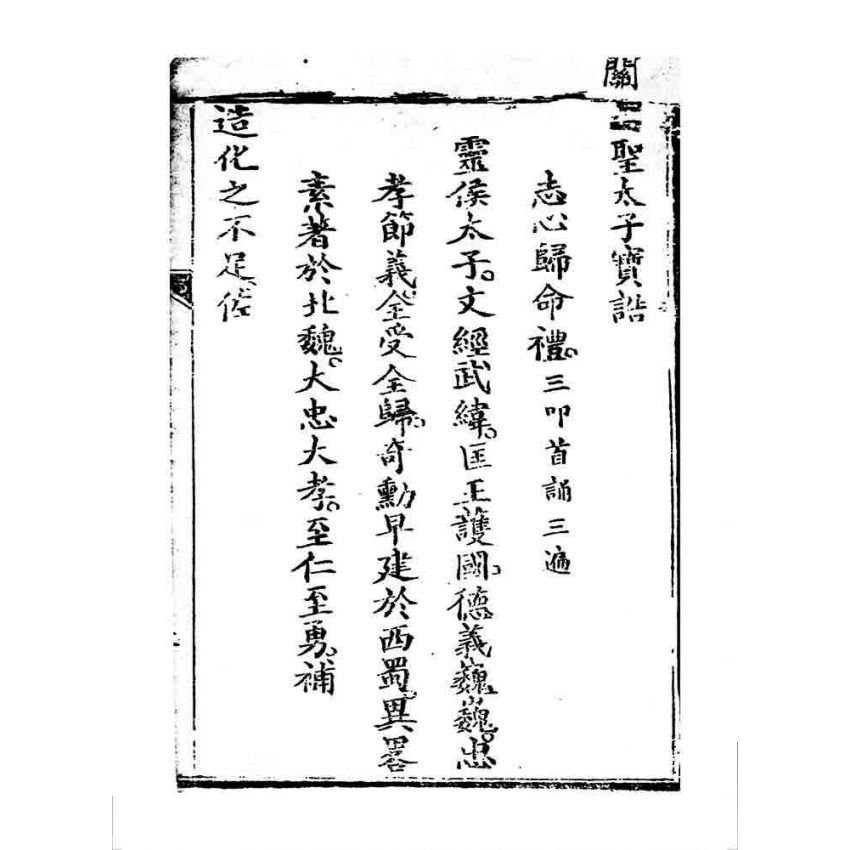 關聖太子寶誥
志心歸命禮。三叩首誦三遍
靈侯太子。文經武緯。匡王護國。德義巍巍。忠
孝節義。全受全歸。奇勳早建於西蜀。異畧
素著於北魏。大忠大孝。至仁至勇。補
造化之不足。佐